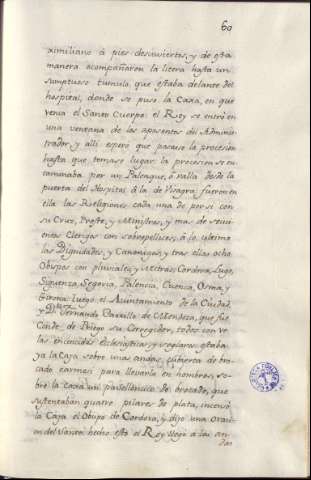 60
aximiliano à pies descuviertos, y de esta
manera acompañaron la litera hasta un
sumptuoso tumulo que estaba delante del
hospital, donde se puso la Caxa, en que
venia el Santo Cuerpo: el Rey se entrò en
una ventana de los aposentos del Adminis-
trador y alli esperò que pasase la procesion
hasta que tomase lugar: la procesion se en-
caminaba por un Palenque, ò valla desde la
puerta del Hospital à la de Visagra: fueron en
ella las Religiones cada una de por sì con
su Cruz, Preste, y Ministros, y mas de seis
cientos Clerigos con sobrepellices, à lo ultimo
las Dignidades, y Canonigos, y tras ellos ocho
Obispos con pluviales, y Mitras, Cordova, Lugo,
Siguenza, Segovia, Palencia, Cuenca, Osma, y
Girona: luego el Ayuntamiento de la Ciudad,
y Dn. Fernando Carrillo de Mendoza, que fue
Conde de Priego su Corregidor, todos con ve-
las encendidas Eclesiasticos y seglares: estaba
ya la Caja sobre unas andas, cubierta de bro-
cado carmesì para llevarla en hombros, so-
bre la caxa un pavelloncico de brocado, que
sustentaban quatro pilares de plata, incensò
la Caja el Obispo de Cordova, y dijo una oraci-
on del Santo: hecho esto el Rey llegò à las an-
das